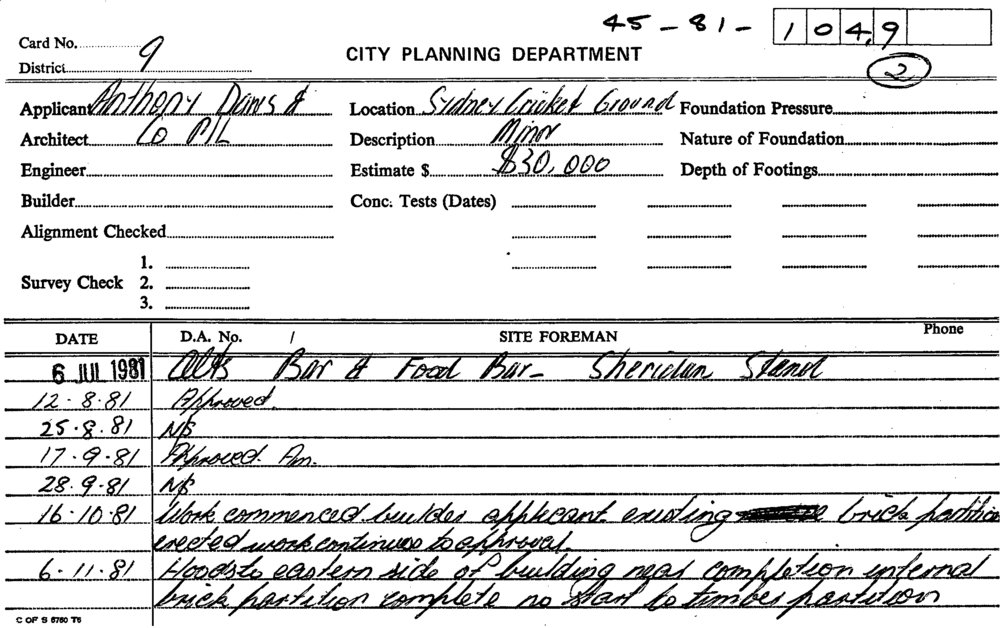 45 - 81 - 1049
Card No. 9
CITY PLANNING DEPARTMENT
District
2
Applicant Anthony Daws & Location Sydney Cricket Ground Foundation Pressure
Architect Co P/L Description Minor Nature of Foundation
Engineer Estimate $ $30,000 Depth of Footings
Builder Conc. Tests (Dates)
Alignment Checked
1.
Survey Check 2.
3.
DATE D.A. No. SITE FOREMAN Phone
6 JUL 1981 Alts Bar & Food Bar - Sheridan Stand
12-8-81 Approved.
25.8.81 NS
17-9-81 Approved. Am.
28.9.81 NS
16-10-81 Work commenced builder applicant existing brick partition
erected work continues to approval.
6-11-81 Hoods to eastern side of building near completion internal
brick partition complete no start to timber partition
C OF S 6760 T6